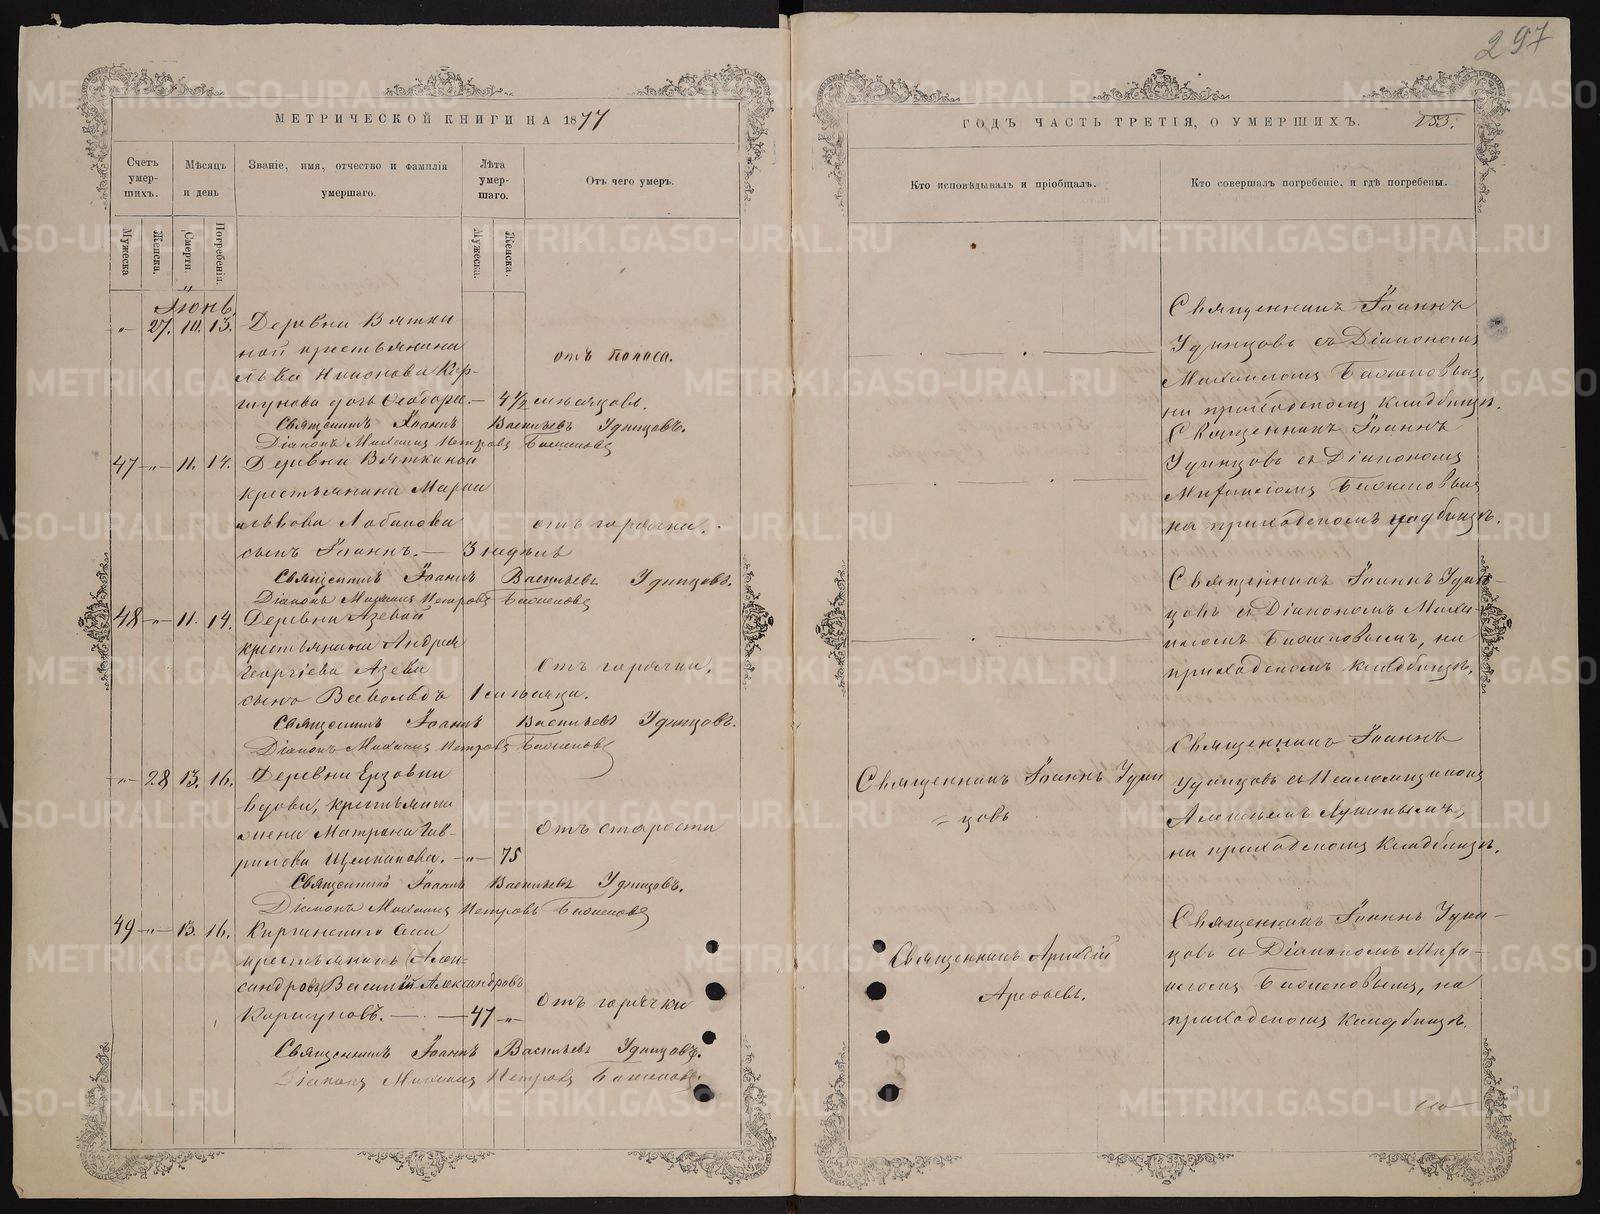 297
МЕТРИЧЕСКОЙ КНИГИ НА 1877
ГОДЪ ЧАСТЬ ТРЕТІЯ, О УМЕРШИХЪ.
153.
Счетъ умер-шихъ.
Мѣсяцъ и день
Званіе, имя, отчество и фамилія
умершаго.
Лѣта умер-шаго.
Отъ чего умеръ.
Кто исповѣдывалъ и пріобщалъ.
Кто совершалъ погребеніе, и гдѣ погребены.
Мужеска
Женска.
Смерти.
Погребенія.
Мужеска.
Женска.
Іюнь.
-"- 27. 10. 13. Деревни Вятки
ной крестьянина
Льва
дочь Ѳеодора. — 4 1/2 мѣсяцовъ.
отъ поноса.
Священникъ Іоаннъ Васильевъ Удинцовъ.
Діаконъ Михаилъ Петровъ Баженовъ
Священникъ Іоаннъ
Удинцовъ съ Діакономъ
Михаиломъ Баженовымъ,
на приходскомъ кладбищѣ.
47 -"- 11. 14. Деревни Вяткиной
крестьянина Марка
Львова Лобанова
сынъ Іоаннъ. — 3 недѣли
отъ горячки.
Священникъ Іоаннъ Васильевъ Удинцовъ.
Діаконъ Михаилъ Петровъ Баженовъ
Священникъ Іоаннъ
Удинцовъ съ Діакономъ
Михаиломъ Баженовымъ
на приходскомъ кладбищѣ.
48 -"- 11. 14. Деревни Азевой
крестьянина Андрея
Георгіева Азева
сынъ Всеволодъ 1 мѣсяца.
Отъ горячки.
Священникъ Іоаннъ Васильевъ Удинцовъ.
Діаконъ Михаилъ Петровъ Баженовъ
Священникъ Іоаннъ Удин-
цовъ съ Діакономъ Миха-
иломъ Баженовымъ, на
приходскомъ кладбищѣ.
-"- 28 13. 16. Деревни Ерзовки
вдова, крестьянка
жена Матрона Гав-
рилова Щелканова. -"- 75
Отъ старости
Священникъ Іоаннъ Васильевъ Удинцовъ.
Діаконъ Михаилъ Петровъ Баженовъ
Священникъ Іоаннъ Удин
= цовъ
Священникъ Іоаннъ
Удинцовъ съ Псаломщикомъ
Алексѣемъ
на приходскомъ кладбищѣ.
49 -"- 13. 16. Киргинскаго села
крестьянинъ (Алек-
сандровъ) Василій Александровъ
Коршуновъ. — 47 -"-
Отъ горячки
Священникъ Іоаннъ Васильевъ Удинцовъ.
Діаконъ Михаилъ Петровъ Баженовъ.
Священникъ Аркадій
Арефьевъ.
Священникъ Іоаннъ Удин-
цовъ съ Діакономъ Миха-
иломъ Баженовымъ, на
приходскомъ кладбищѣ.
METRIKI.GASO-URAL.RU